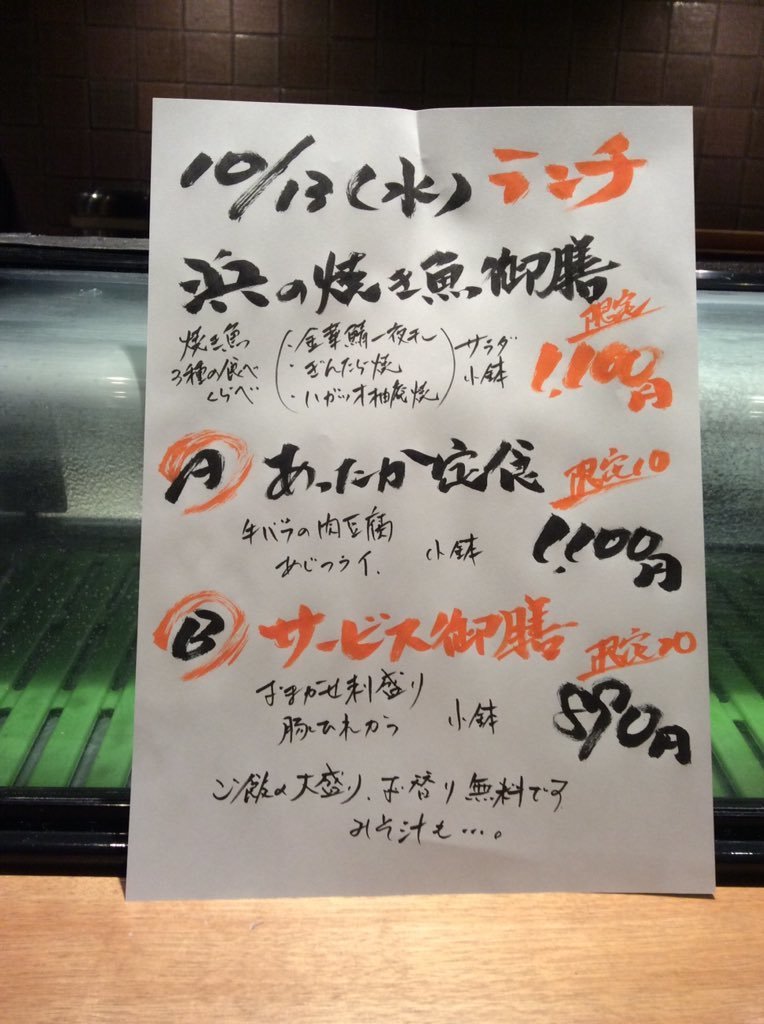 10/13(水) ランチ
浜の焼き魚御膳
焼き魚
3種の食べ
くらべ
・金華鯖一夜干し
・ぎんだら焼
・ハガツオ柚庵焼
サラダ
小鉢
限定
1,100円
A あったか定食 限定10
牛バラの肉豆腐
あじフライ、 小鉢
1,100円
B サービス御膳 限定20
おまかせ刺盛り
豚ひれかつ 小鉢
890円
ご飯の大盛り、お替り無料です
みそ汁も…。